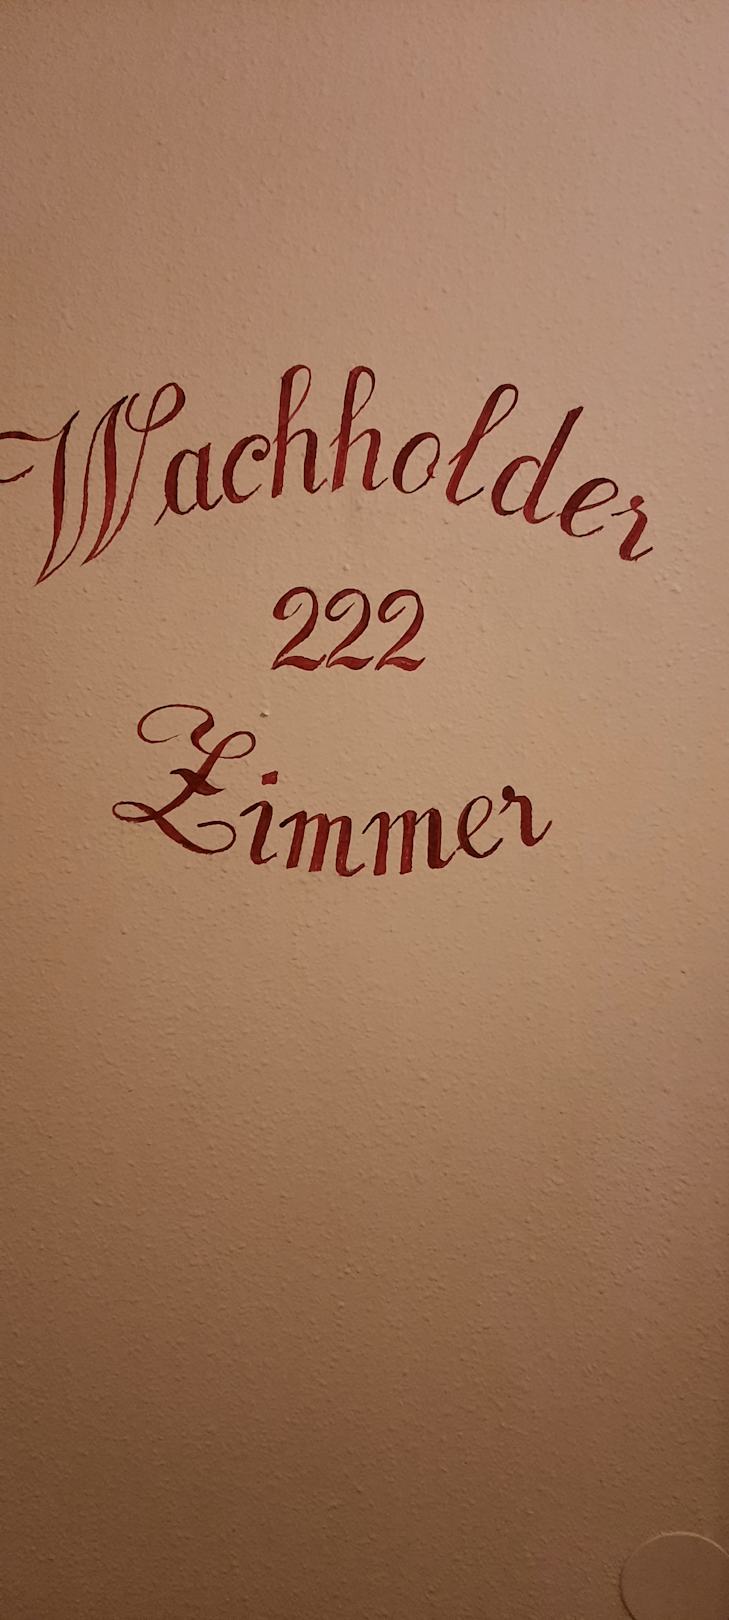 Wachholder
222
Zimmer